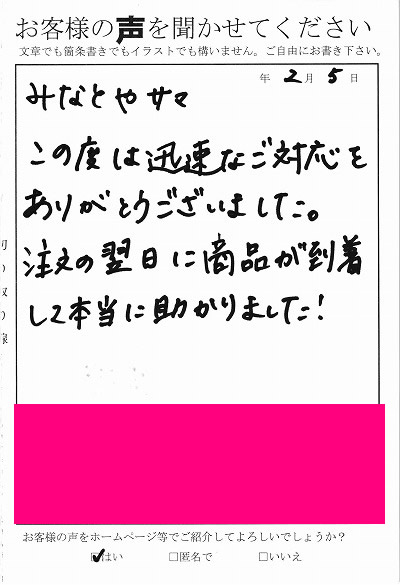 お客様の声を聞かせてください
文章でも箇条書きでもイラストでも構いません。ご自由にお書き下さい。
年 2月 5日
みなとやサマ
この度は迅速なご対応を
ありがとうございました。
注文の翌日に商品が到着
して本当に助かりました!
お客様の声をホームページ等でご紹介してよろしいでしょうか?
☑はい □匿名で □いいえ